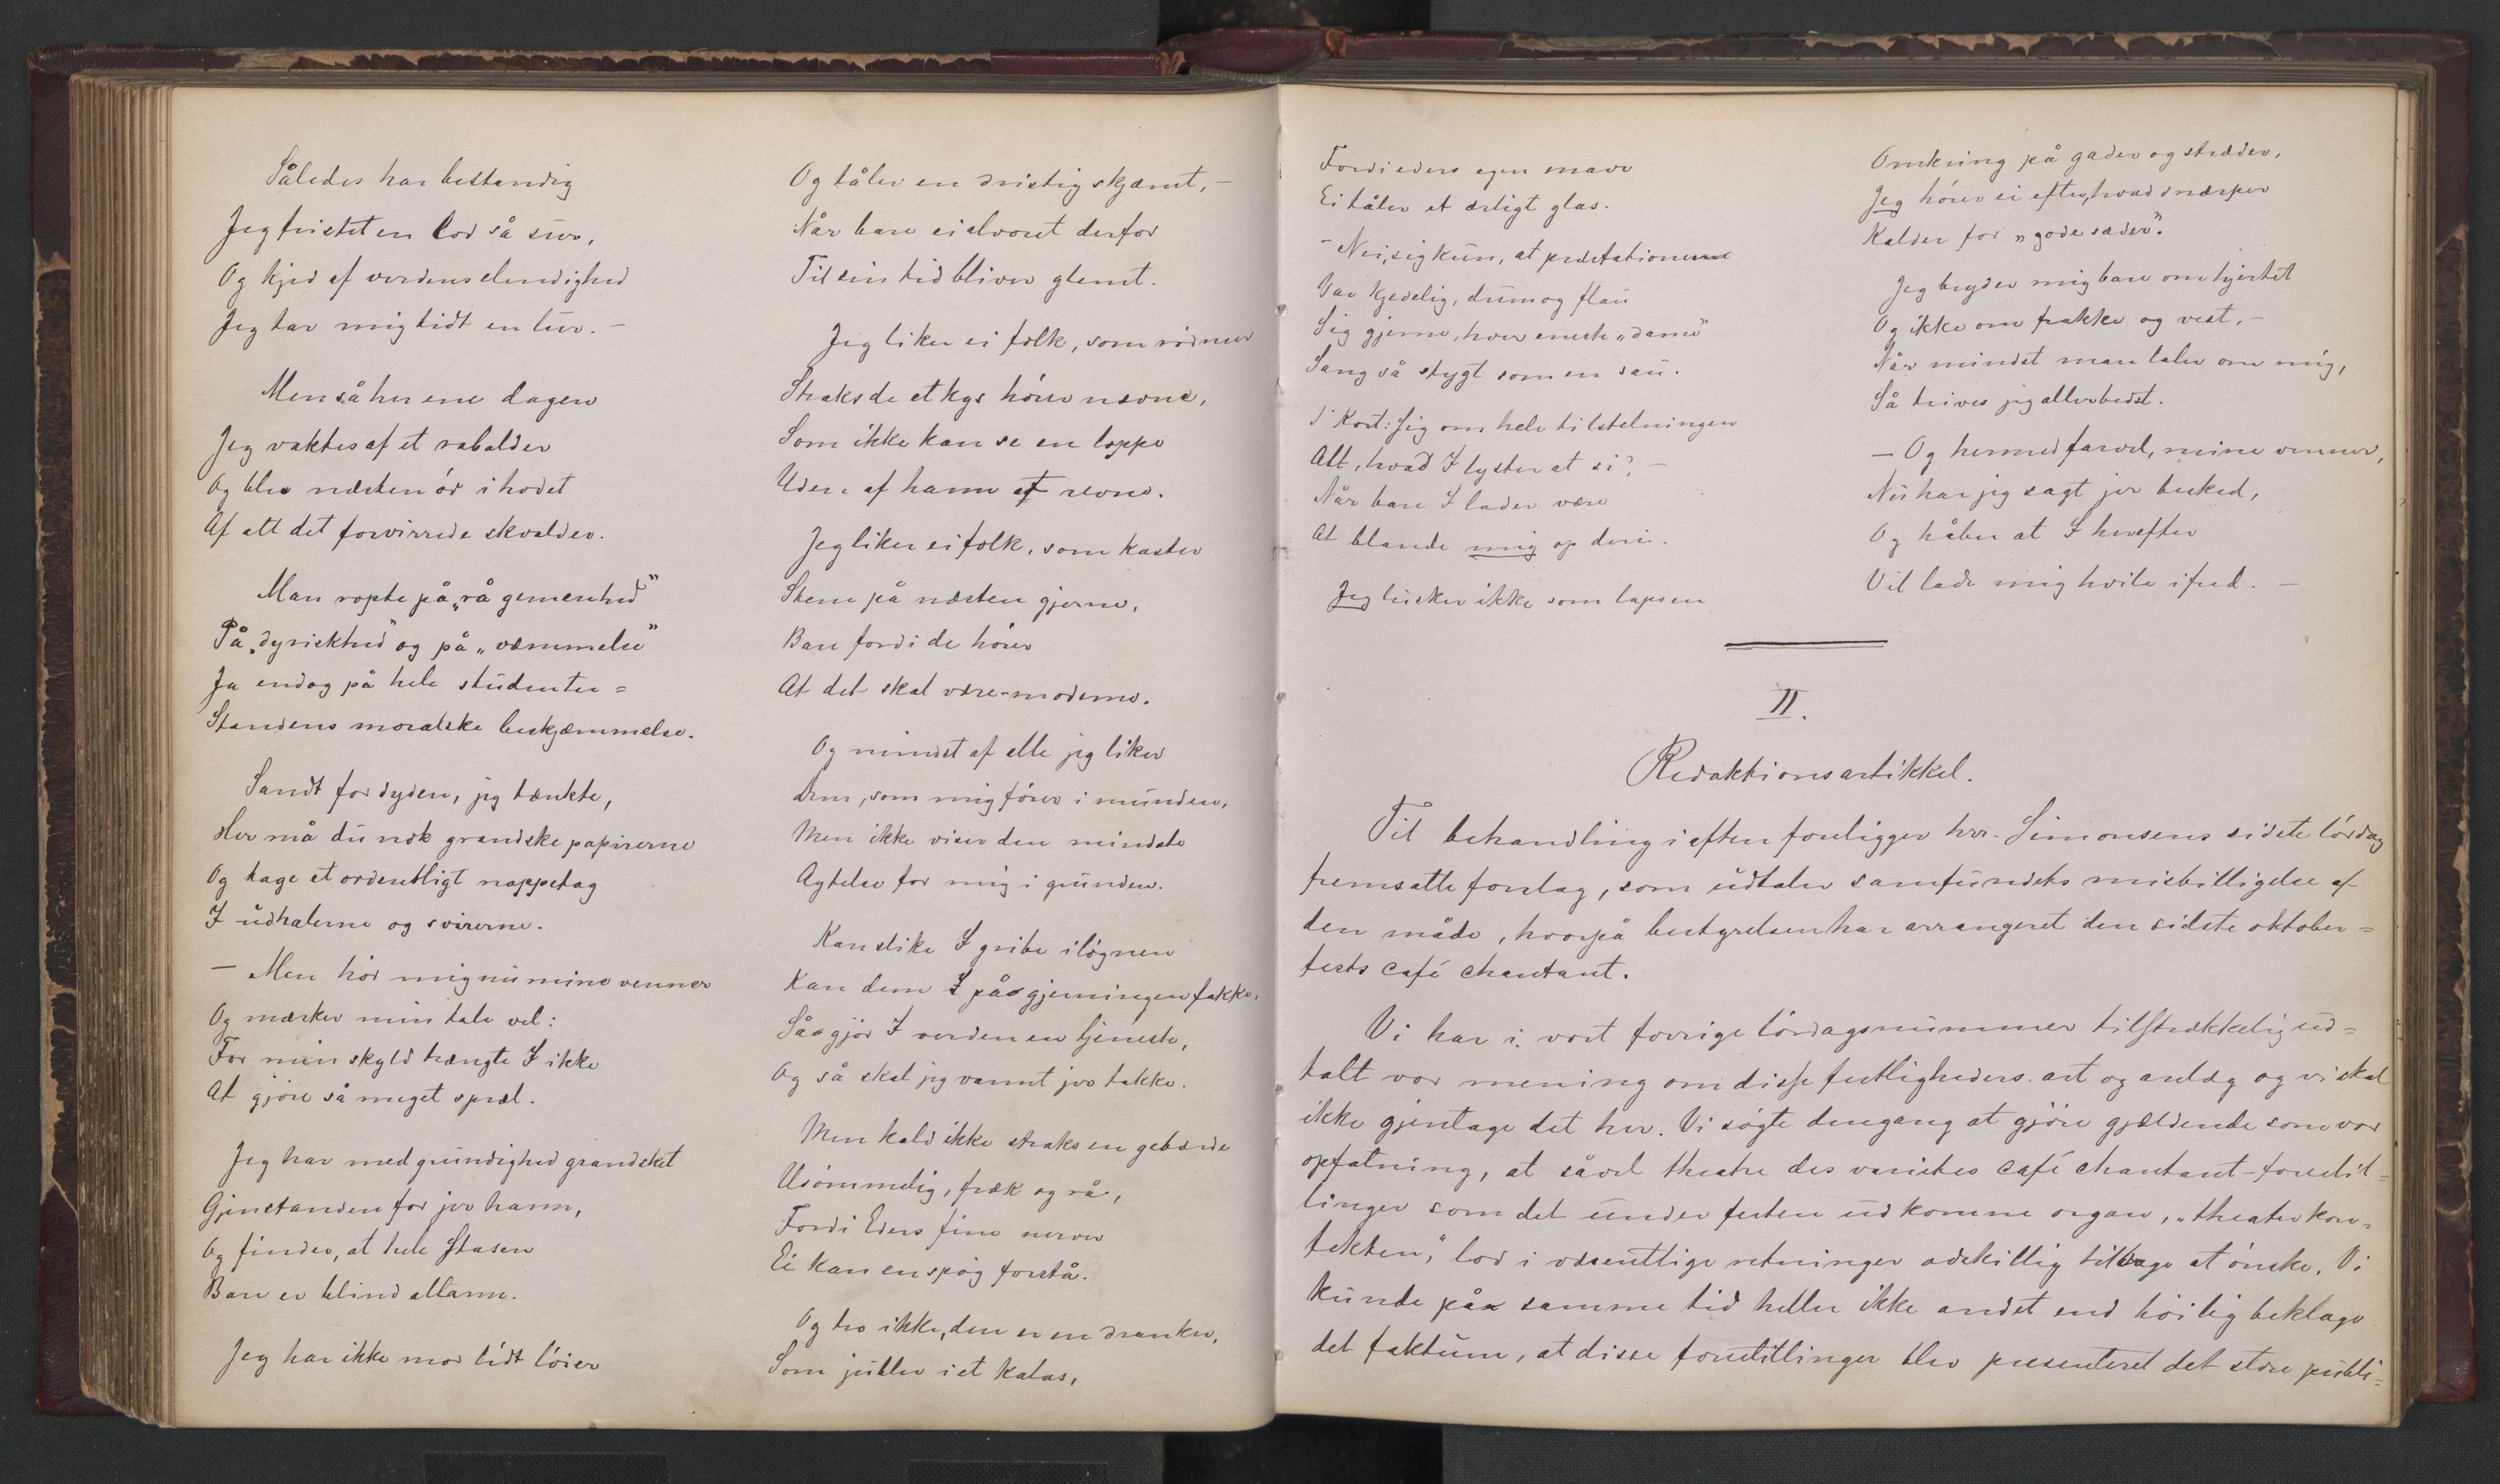 Således har bestandig
Jeg fristet en lod så sur,
Og kjed af verdens elendighed
Jeg tar mig tidt en lur. –
Men så her ene dagen
Jeg vaktes af et rabalder
Og blev næsten ør i hodet
Af alt det forvirrede skvalder.
Man ropte på „rå gemenhed”
På „dyriskhed” og på „væmmelse”
Ja endog på hele studenter=
Standens moralske beskjæmmelse.
Sandt for dyden, jeg tænkte,
Her må du nok grandske papirerne
Og tage et ordentligt nappetag
I udhalerne og svirerne.
– Men hør mig nu mine venner
Og mærker min tale vel:
For min skyld trængte I ikke
At gjøre så meget spræl.
Jeg har med grundighed grandsket
Gjenstanden for jer harm,
Og finder, at hele stasen
Bare er blind allarm.
Jeg har ikke mod lidt løier
Og tåler en dristig skjæmt, –
Når bare ei alvoret derfor
Til sin tid bliver glemt.
Jeg liker ei folk, som rødmer
Straks de et kys hører nævne,
Som ikke kan se en loppe
Uden af harm at revne.
Jeg liker ei folk, som kaster
Stene på næsten gjerne,
Bare fordi de hører
At det skal være moderne.
Og mindst af alle jeg liker
Dem, som mig fører i munden,
Men ikke viser den mindste
Agtelse for mig i grunden.
Kan slike I gribe i løgnen
Kan dem I på gjerningen fakke,
Så gjør I verden en tjeneste,
Og så skal jeg varmt jer takke.
Men kald ikke straks en gebærde
Usømmelig, fræk og rå,
Fordi Eders fine nerver
Ei kan en spøg forstå.
Og tro ikke, den er en dranker,
Som jubler i et kalas,
Fordi eders egen mave
Ei tåler et ærligt glas.
– Nei, sig kun, at præstationerne
Var kjedelig, dum og flau
Sig gjerne, hver eneste „dame”
Sang så stygt som en sau.
I Kort: Sig om hele tilstelningen
Alt, hvad I lyster at si, –
Når bare I lader være
At blande mig op deri.
Jeg lusker ikke som lapsen
Omkring på gader og stræder,
Jeg hører ei efter, hvad snærper
Kalder for „gode sæder”.
Jeg bryder mig bare om hjertet
Og ikke om frakke og vest, –
Når mindst man taler om mig,
Så trives jeg allerbedst.
– Og hermed farvel, mine venner,
Nu har jeg sagt jer besked,
Og håber at I herefter
Vil lade mig hvile i fred. –
II.
Redaktionsartikkel.
Til behandling i aften foreligger hrr. Simonsens sidste lørdag
fremsatte forslag, som udtaler samfundets misbilligelse af
den måde, hvorpå bestyrelsen har arrangeret den sidste oktober=
fests café chantant.
Vi har i vort forrige lørdagsnummer tilstrækkelig ud=
talt vor mening om disse festligheders art og anlæg og vi skal
ikke gjentage det her. Vi søgte dengang at gjøre gjældende som vor
opfatning, at såvel theatre des varietes café chantant-forestil=
linger som det under festen udkomne organ, „theaterkon=
tekten,” lod i væsentlige retninger adskillig tilbage at ønske. Vi
kunde på samme tid heller ikke andet end høilig beklage
det faktum, at disse forestillinger blev presenteret det store publi=